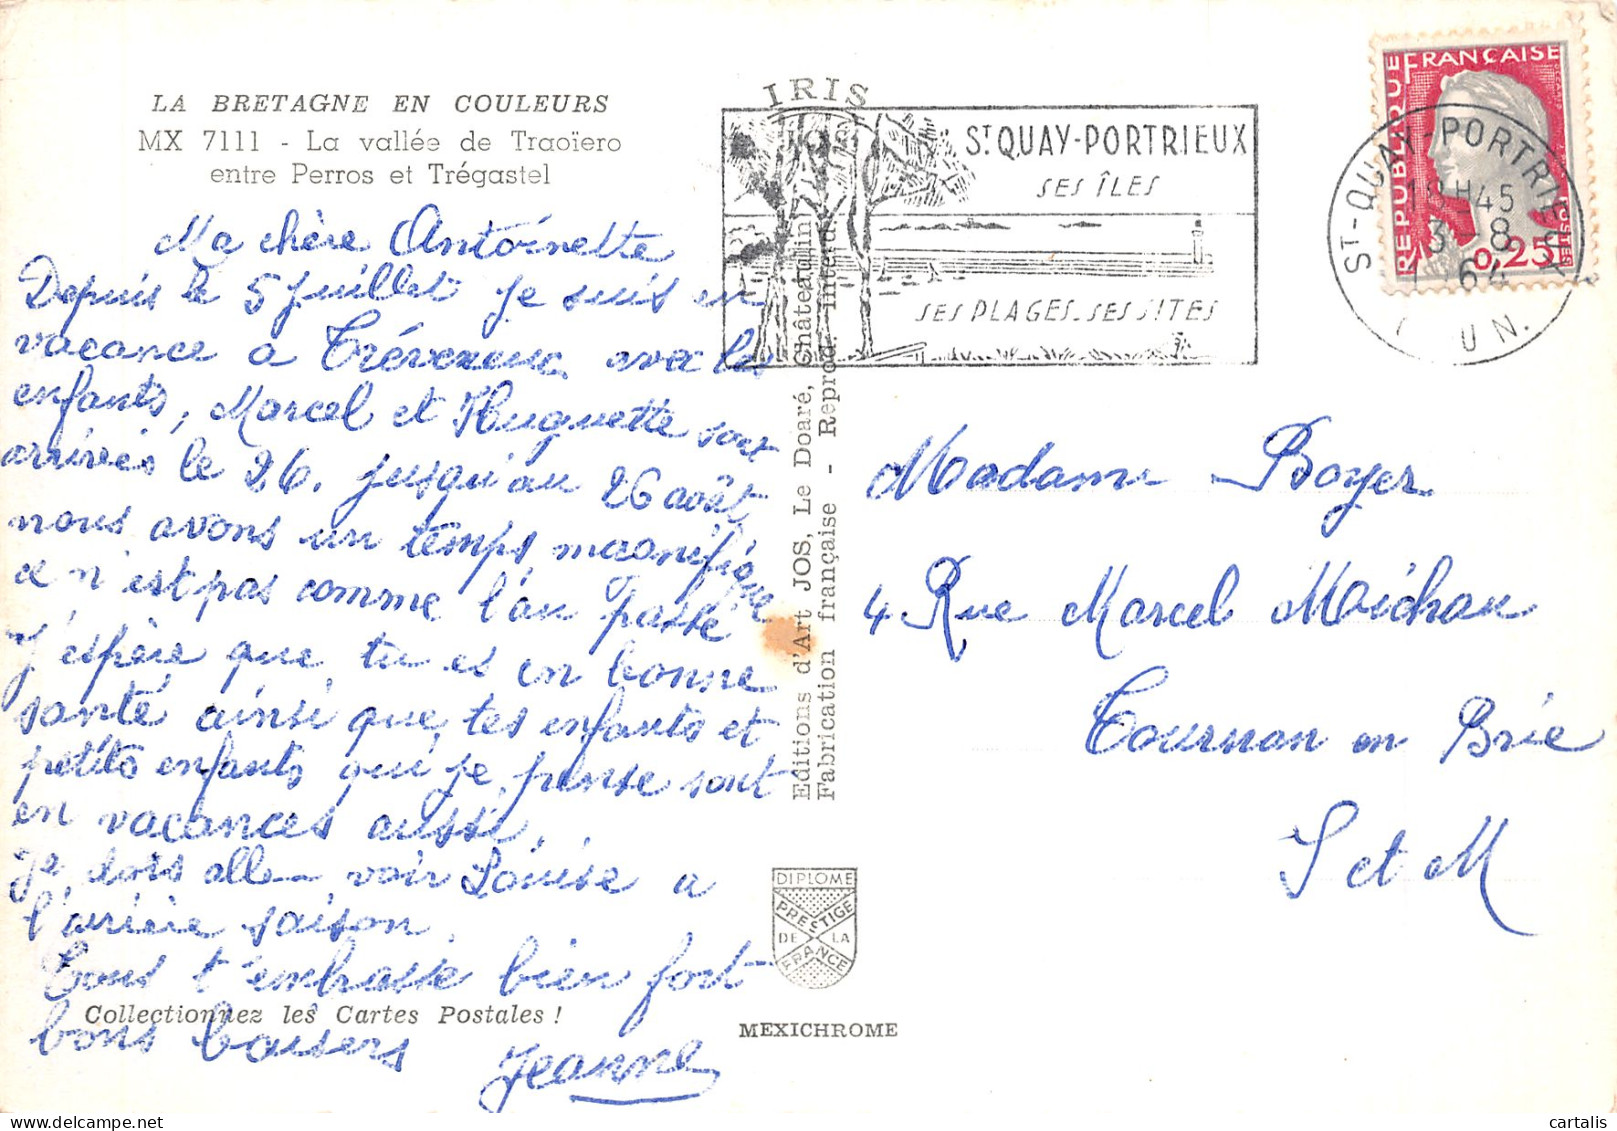 LA BRETAGNE EN COULEURS
MX 7111 - La vallée de Traoïero
entre Perros et Trégastel
Ma chère Antoinette
Depuis le 5 juillet je suis en
vacance a Tréveneuc avec les
enfants, Marcel et Huguette sont
arrivés le 26. jusqu'au 26 août
nous avons un temps magnifique
ce n'est pas comme l'an passé
J'espère que tu es en bonne
santé ainsi que tes enfants et
petits enfants qui je pense sont
en vacances aussi.
Je dois aller voir Louise a
l'arrière saison.
Tous t'embrasse bien fort
Collectionnez les Cartes Postales !
bons baisers Jeanne
IRIS
JOS
Editions d'Art JOS, Le Doaré, Châteaulin
Fabrication française - Reprod. interd.
DIPLOME
PRESTIGE
DE LA
FRANCE
MEXICHROME
ST QUAY-PORTRIEUX
SES ÎLES
SES PLAGES_SES SITES
REPUBLIQUE FRANÇAISE
POSTES
0,25
ST-QUAY-PORTRIEUX
H45
3-8
64
UN.
Madame Boyer
4 Rue Marcel Michau
Tournan en Brie
S et M
cartalis